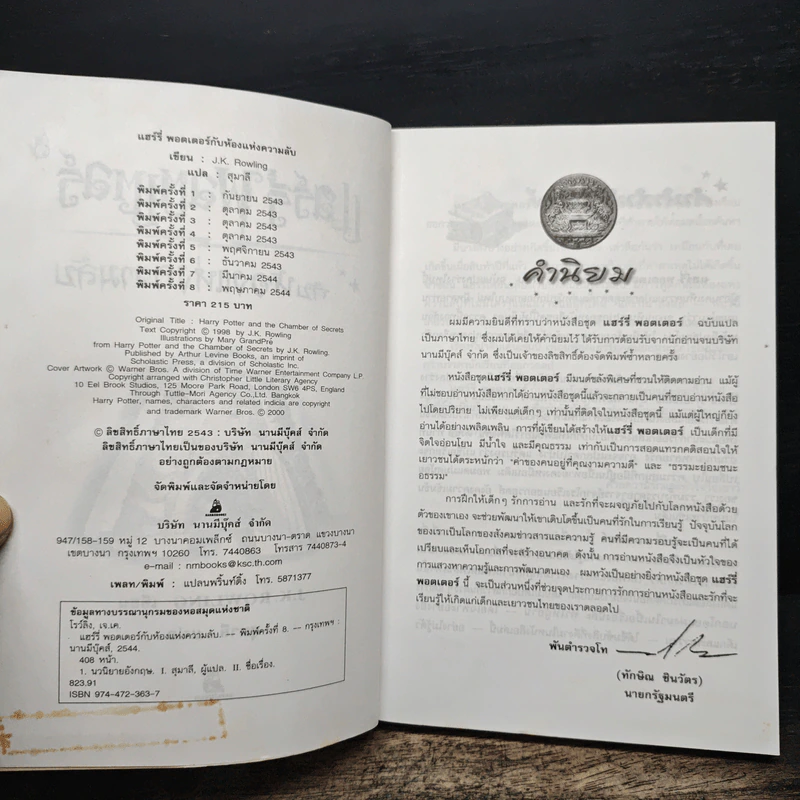 แฮร์รี่ พอตเตอร์กับห้องแห่งความลับ
เขียน : J.K. Rowling
แปล : สุมาลี
พิมพ์ครั้งที่ 1 : กันยายน 2543
พิมพ์ครั้งที่ 2 : ตุลาคม 2543
พิมพ์ครั้งที่ 3 : ตุลาคม 2543
พิมพ์ครั้งที่ 4 : ตุลาคม 2543
พิมพ์ครั้งที่ 5 : พฤศจิกายน 2543
พิมพ์ครั้งที่ 6 : ธันวาคม 2543
พิมพ์ครั้งที่ 7 : มีนาคม 2544
พิมพ์ครั้งที่ 8 : พฤษภาคม 2544
ราคา 215 บาท
Original Title : Harry Potter and the Chamber of Secrets
Text Copyright © 1998 by J.K. Rowling
Illustrations by Mary GrandPré
from Harry Potter and the Chamber of Secrets by J.K. Rowling.
Published by Arthur Levine Books, an imprint of
Scholastic Press, a division of Scholastic Inc.
Cover Artwork © Warner Bros. A Division of Time Warner Entertainment Company L.P.
Copyright arranged with Christopher Little Literary Agency
10 Eel Brook Studios, 125 Moore Park Road, London SW6 4PS, England
Through Tuttle-Mori Agency Co., Ltd. Bangkok
Harry Potter, names, characters and related indicia are copyright
and trademark Warner Bros. © 2000
© ลิขสิทธิ์ภาษาไทย 2543 : บริษัท นานมีบุ๊คส์ จำกัด
ลิขสิทธิ์ภาษาไทยเป็นของบริษัท นานมีบุ๊คส์ จำกัด
อย่างถูกต้องตามกฎหมาย
จัดพิมพ์และจัดจำหน่ายโดย
บริษัท นานมีบุ๊คส์ จำกัด
947/158-159 หมู่ 12 บางนาคอมเพล็กซ์ ถนนบางนา-ตราด แขวงบางนา
เขตบางนา กรุงเทพฯ 10260 โทร. 7440863 โทรสาร 7440873-4
e-mail : nmbooks@ksc.th.com
เพลท/พิมพ์ : แปลนพริ้นท์ติ้ง โทร. 5871377
ข้อมูลทางบรรณานุกรมของหอสมุดแห่งชาติ
โรว์ลิง, เจ.เค.
แฮร์รี่ พอตเตอร์กับห้องแห่งความลับ. -- พิมพ์ครั้งที่ 8. -- กรุงเทพฯ :
นานมีบุ๊คส์, 2544.
408 หน้า.
1. นวนิยายอังกฤษ. I. สุมาลี, ผู้แปล. II. ชื่อเรื่อง.
823.91
ISBN 974-472-363-7
คำนิยม
ผมมีความยินดีที่ทราบว่าหนังสือชุด แฮร์รี่ พอตเตอร์ ฉบับแปล
เป็นภาษาไทย ซึ่งผมได้เคยให้คำนิยมไว้ ได้รับการต้อนรับจากนักอ่านจนบริษัท
นานมีบุ๊คส์ จำกัด ซึ่งเป็นเจ้าของลิขสิทธิ์ต้องจัดพิมพ์ซ้ำหลายครั้ง
หนังสือชุดแฮร์รี่ พอตเตอร์ มีมนต์ขลังพิเศษที่ชวนให้ติดตามอ่าน แม้ผู้
ที่ไม่ชอบอ่านหนังสือหากได้อ่านหนังสือชุดนี้แล้วจะกลายเป็นคนที่ชอบอ่านหนังสือ
ไปโดยปริยาย ไม่เพียงแต่เด็กๆ เท่านั้นที่ติดใจในหนังสือชุดนี้ แม้แต่ผู้ใหญ่ก็ยัง
อ่านได้อย่างเพลิดเพลิน การที่ผู้เขียนได้สร้างให้แฮร์รี่ พอตเตอร์ เป็นเด็กที่มี
จิตใจอ่อนโยน มีน้ำใจ และมีคุณธรรม เท่ากับเป็นการสอดแทรกคติสอนใจให้
เยาวชนได้ตระหนักว่า "ค่าของคนอยู่ที่คุณงามความดี" และ "ธรรมะย่อมชนะ
อธรรม"
การฝึกให้เด็กๆ รักการอ่าน และรักที่จะผจญภัยไปกับโลกหนังสือด้วย
ตัวของเขาเอง จะช่วยพัฒนาให้เขาเติบโตขึ้นเป็นคนที่รักในการเรียนรู้ ปัจจุบันโลก
ของเราเป็นโลกของสังคมข่าวสารและความรู้ คนที่มีความรอบรู้จะเป็นคนที่ได้
เปรียบและเห็นโอกาสที่จะสร้างอนาคต ดังนั้น การอ่านหนังสือจึงเป็นหัวใจของ
การแสวงหาความรู้และการพัฒนาตนเอง ผมหวังเป็นอย่างยิ่งว่าหนังสือชุด แฮร์รี่
พอตเตอร์ นี้ จะเป็นส่วนหนึ่งที่ช่วยจุดประกายการรักการอ่านหนังสือและรักที่จะ
เรียนรู้ให้เกิดแก่เด็กและเยาวชนไทยของเราตลอดไป
พันตำรวจโท
(ทักษิณ ชินวัตร)
นายกรัฐมนตรี